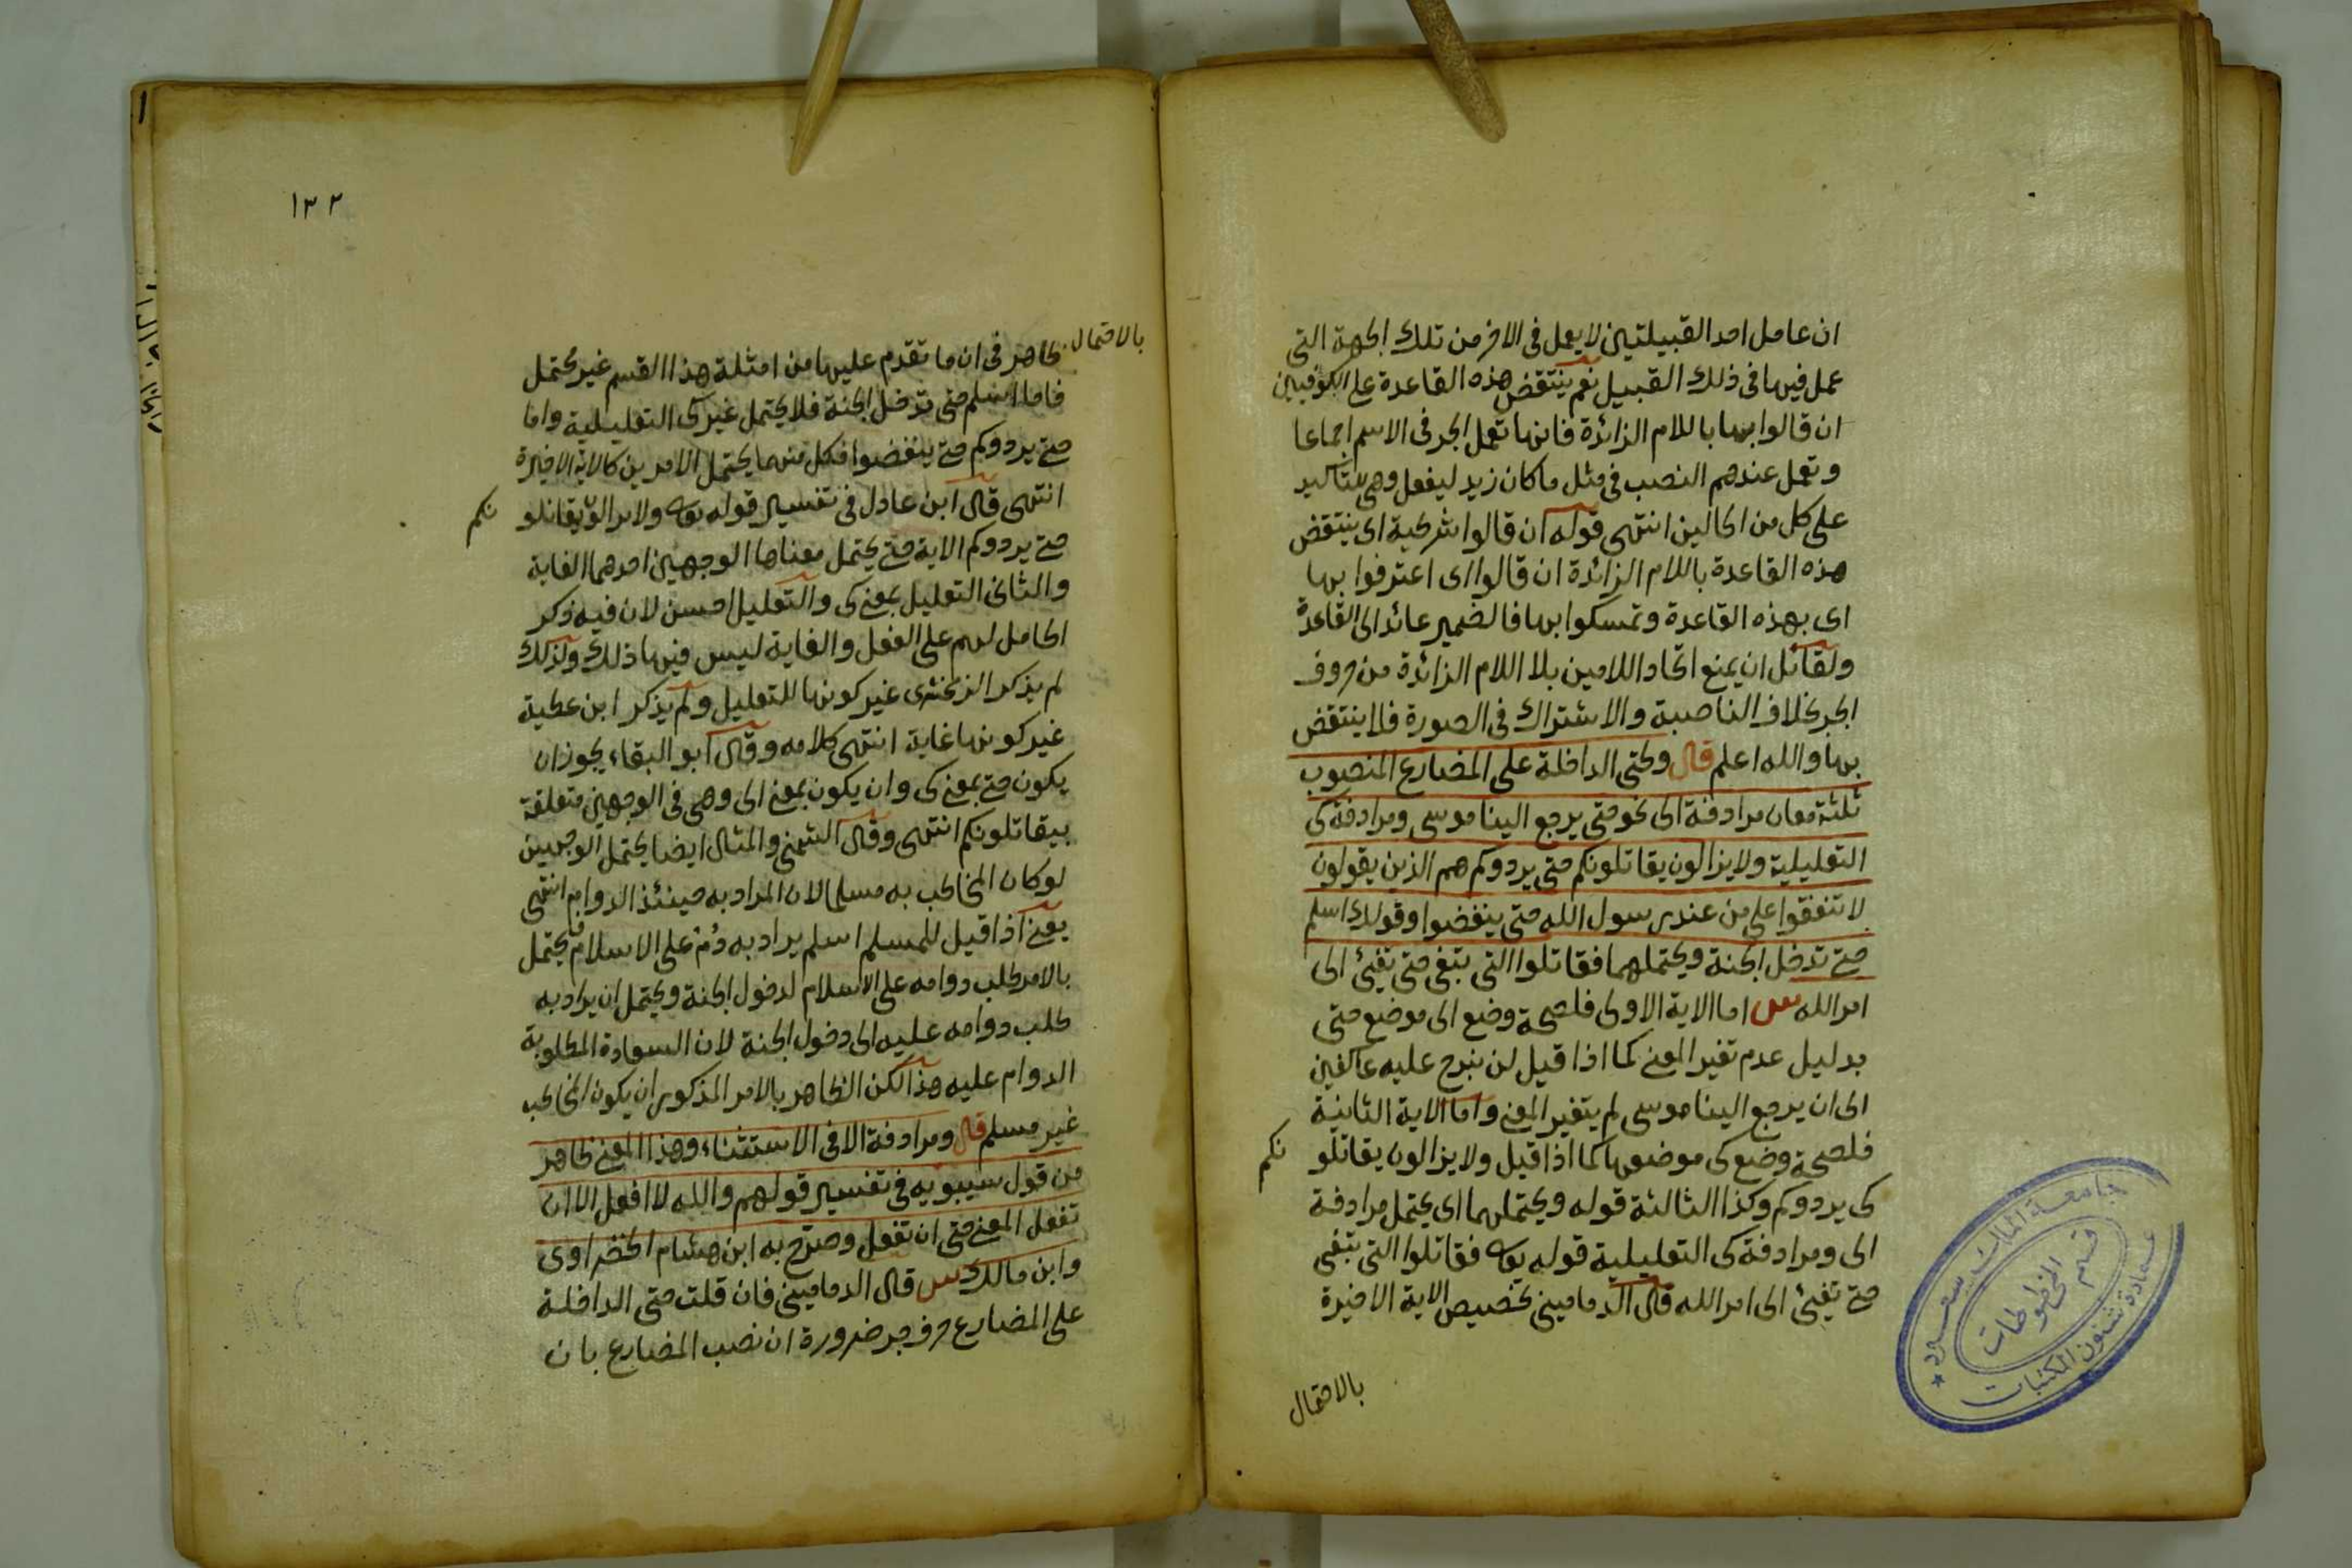 ان عامل احد القبيلتين لا يعمل فى الاخر من تلك الجهة التى
عمل فيها فى ذلك القبيل نعم ينتقض هذه القاعدة على الكوفيين
ان قالوا بها باللام الزائدة فانها تعمل الجر فى الاسم اجماعا
وتعمل عندهم النصب فى مثل ما كان زيد ليفعل وهى للتأكيد
على كل من الحالين انتهى قوله ان قالوا شرطية اى ينتقض
هذه القاعدة باللام الزائدة ان قالوا اى اعترفوا بها
اى بهذه القاعدة وتمسكوا بها فالضمير عائد الى القاعدة
ولقائل ان يمنع اتحاد اللامين بلا اللام الزائدة من حروف
الجر بخلاف الناصبة والاشتراك فى الصورة فلا ينتقض
بها والله اعلم قال وحتى الداخلة على المضارع المنصوب
ثلثة معان مرادفة الى نحو حتى يرجع الينا موسى ومرادفة كى
التعليلية ولا يزالون يقاتلونكم حتى يردوكم هم الذين يقولون
لا تنفقوا على من عند رسول الله حتى ينفضوا وقولك اسلم
حتى تدخل الجنة ويحتملهما فقاتلوا التى تبغى حتى تفئ الى
امر الله اما الاية الاولى فلصحة وضع الى موضع حتى
بدليل عدم تغير المعنى كما اذا قيل لن نبرح عليه عاكفين
الى ان يرجع الينا موسى لم يتغير المعنى واما الاية الثانية
فلصحة وضع كى موضعها كما اذا قيل ولا يزالون يقاتلو نكم
كى يردوكم وكذا الثالثة قوله ويحتملهما اى يحتمل مرادفة
الى ومرادفة كى التعليلية قوله تع فقاتلوا التى تبغى
حتى تفئ الى امر الله قال الدمامينى تخصيص الاية الاخيرة
بالاحتمال
جامعة الملك سعود
عمادة شئون المكتبات
قسم المخطوطات
١٣٢
بالاحتمال ظاهر فى ان ما تقدم عليها من امثلة هذا القسم غير محتمل
فاما اسلم حتى تدخل الجنة فلا يحتمل غير كى التعليلية واما
حتى يردوكم حتى ينفضوا فكل منهما يحتمل الامرين كالاية الاخيرة
انتهى قال ابن عادل فى تفسير قوله تع ولا يزالون يقاتلو نكم
حتى يردوكم الاية حتى يحتمل معناها الوجهين احدهما الغاية
والثانى التعليل بمعنى كى والتعليل احسن لان فيه ذكر
الحامل لهم على الفعل والغاية ليس فيها ذلك ولذلك
لم يذكر الزمخشرى غير كونها للتعليل ولم يذكر ابن عطية
غير كونها غاية انتهى كلامه وقال ابو البقاء يجوز ان
يكون حتى بمعنى كى وان يكون بمعنى الى وهى فى الوجهين متعلقة
بيقاتلونكم انتهى وقال الشمنى والمثال ايضا يحتمل الوجهين
لو كان المخاطب به مسلما لان المراد به حينئذ الدوام انتهى
يعنى اذا قيل للمسلم اسلم يراد به دُمْ على الاسلام فيحتمل
بالامر طلب دوامه على الاسلام لدخول الجنة ويحتمل ان يراد به
طلب دوامه عليه الى دخول الجنة لان السعادة المطلوبة
الدوام عليه هذا لكن الظاهر بالامر المذكور ان يكون المخاطب
غير مسلم قال ومرادفة الا فى الاستثناء وهذا المعنى ظاهر
من قول سيبويه فى تفسير قولهم والله لا افعل الا ان
تفعل المعنى حتى ان تفعل وصرّح به ابن هشام الخضراوى
وابن مالك قال الدمامينى فان قلت حتى الداخلة
على المضارع حرف جر ضرورة ان نصب المضارع بان